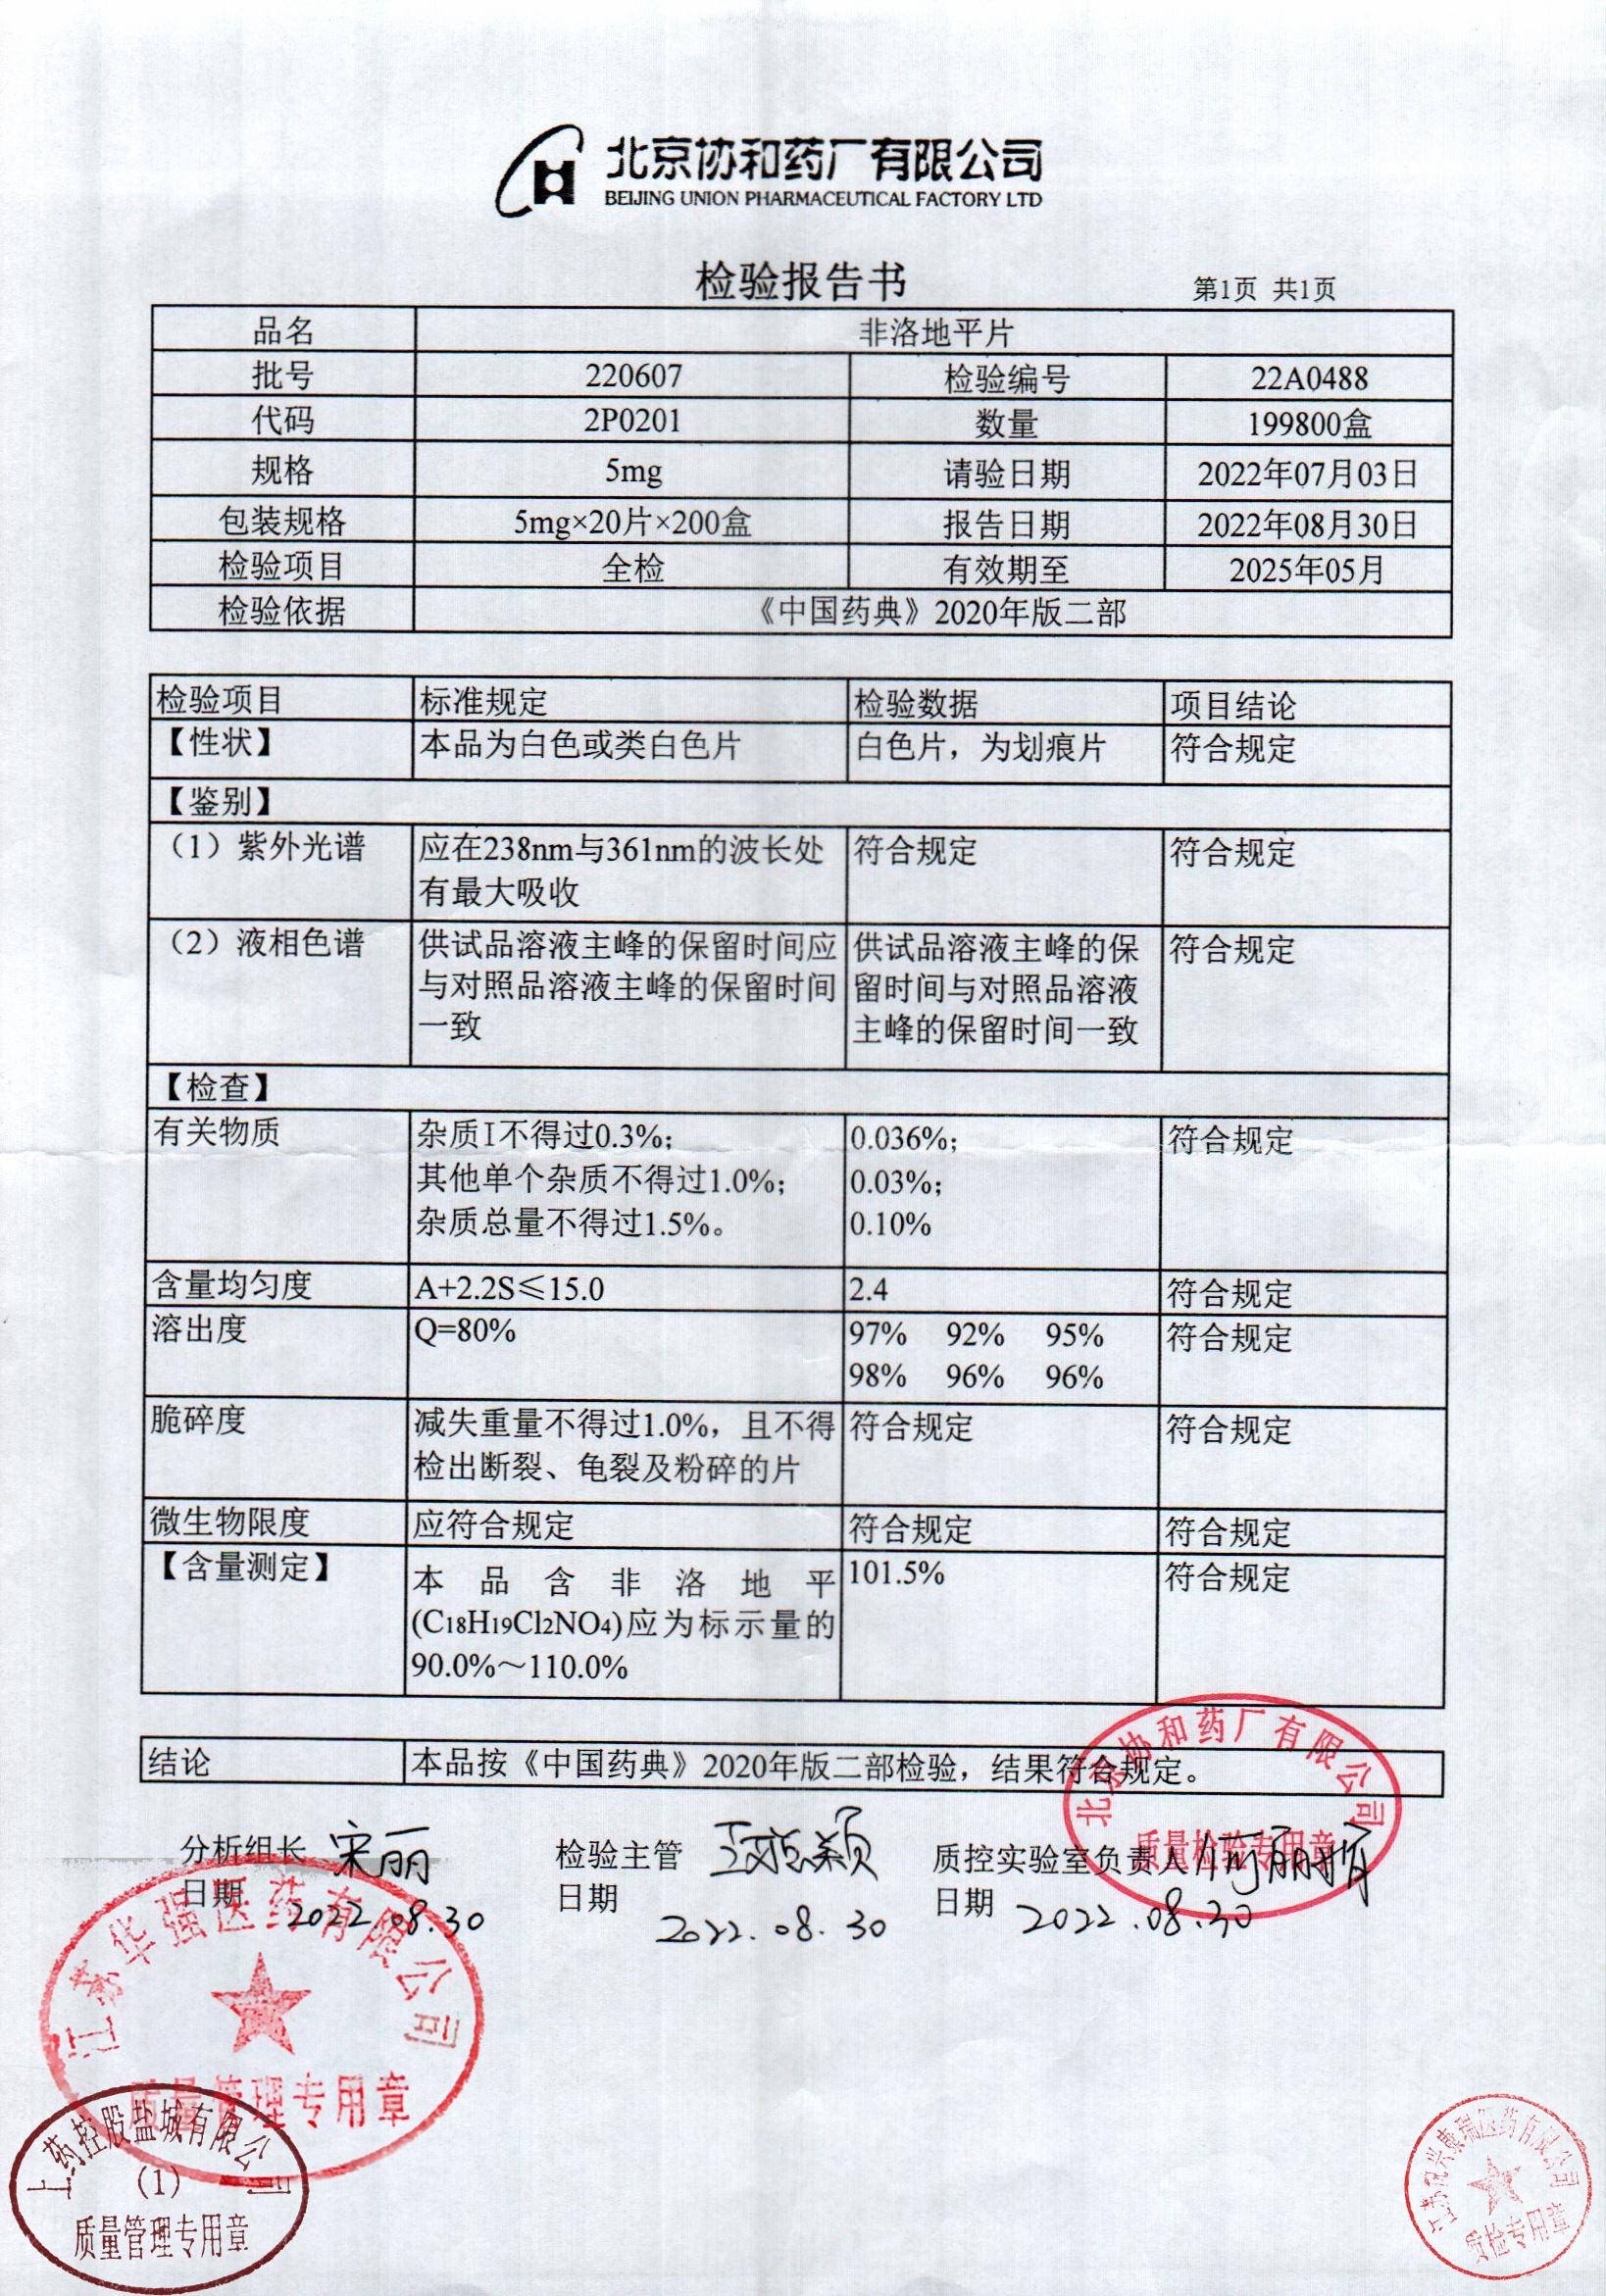 北京协和药厂有限公司
BEIJING UNION PHARMACEUTICAL FACTORY LTD
检验报告书
第1页 共1页
品名 非洛地平片
批号 220607 检验编号 22A0488
代码 2P0201 数量 199800盒
规格 5mg 请验日期 2022年07月03日
包装规格 5mg×20片×200盒 报告日期 2022年08月30日
检验项目 全检 有效期至 2025年05月
检验依据 《中国药典》2020年版二部
检验项目 标准规定 检验数据 项目结论
【性状】 本品为白色或类白色片 白色片，为划痕片 符合规定
【鉴别】
（1）紫外光谱 应在238nm与361nm的波长处 符合规定 符合规定
有最大吸收
（2）液相色谱 供试品溶液主峰的保留时间应 供试品溶液主峰的保 符合规定
与对照品溶液主峰的保留时间 留时间与对照品溶液
一致 主峰的保留时间一致
【检查】
有关物质 杂质I不得过0.3%； 0.036%； 符合规定
其他单个杂质不得过1.0%； 0.03%；
杂质总量不得过1.5%。 0.10%
含量均匀度 A+2.2S≤15.0 2.4 符合规定
溶出度 Q=80% 97% 92% 95% 符合规定
98% 96% 96%
脆碎度 减失重量不得过1.0%，且不得 符合规定 符合规定
检出断裂、龟裂及粉碎的片
微生物限度 应符合规定 符合规定 符合规定
【含量测定】 本品含非洛地平 101.5% 符合规定
(C18H19Cl2NO4)应为标示量的
90.0%～110.0%
结论 本品按《中国药典》2020年版二部检验，结果符合规定。
北京协和药厂有限公司
质量检验专用章
分析组长 宋丽 检验主管 质控实验室负责人
日期 2022.08.30 日期 2022.08.30 日期 2022.08.30
江苏华强医药有限公司
质量管理专用章
上药控股盐城有限公司
(1)
质量管理专用章
质检专用章